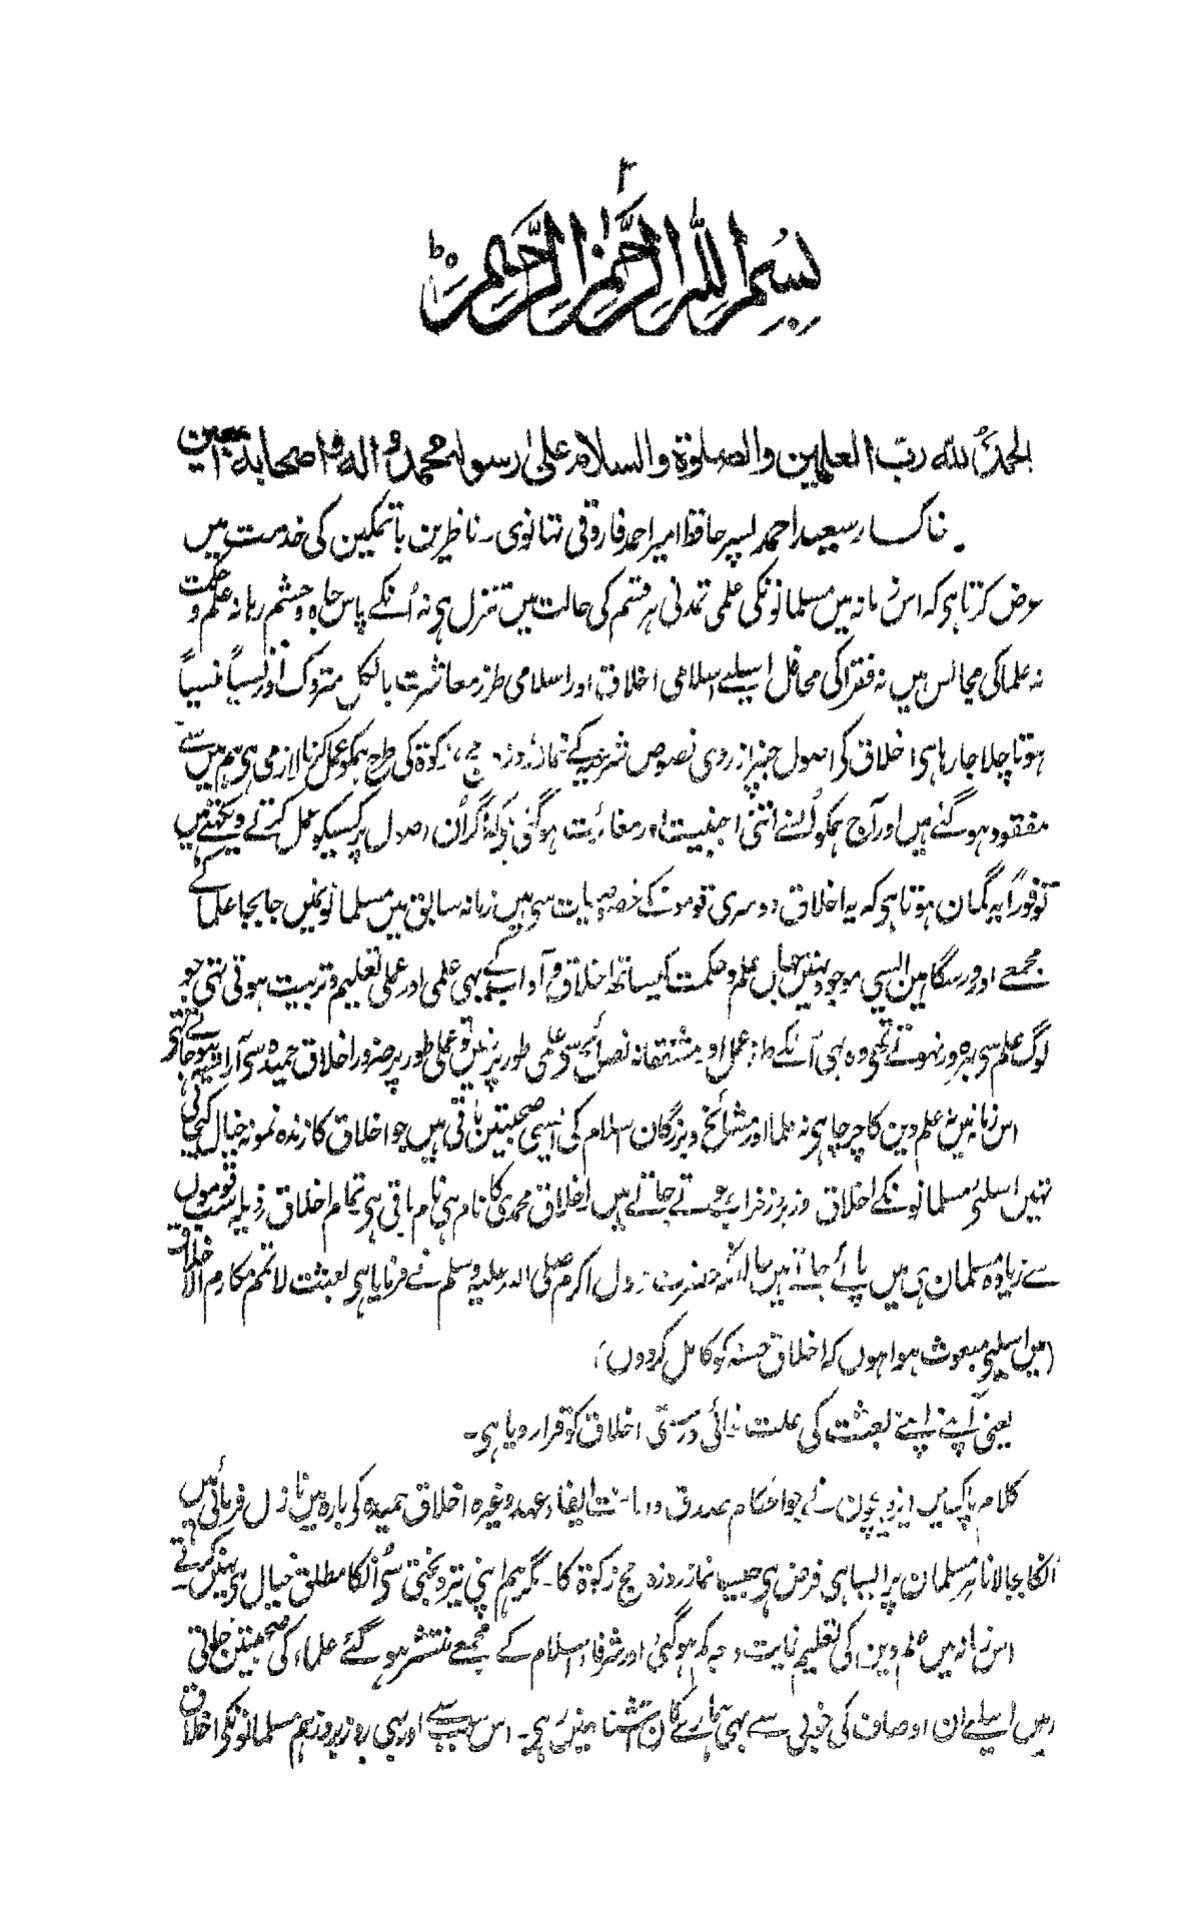 ۲
بسم الله الرحمن الرحيم ط
الحمد لله رب العلمين والصلوة والسلام على رسوله محمد و اله و اصحابه اجمعين
خاکسار سعید احمد پسر حافظ امیر احمد فاروقی تھانوی ۔ ناظرین باتمکین کی خدمت میں
عرض کرتا ہی کہ اس زمانہ میں مسلمانونکی علمی تمدنی ہر قسم کی حالت میں تنزل ہی نہ اُنکے پاس جاہ و حشم رہا نہ علم و حکمت
نہ علما کی مجالس ہیں نہ فقرا کی محافل اسیلیے اسلامی اخلاق اور اسلامی طرز معاشرت بالکل متروک اور نسیاً منسیاً
ہوتا چلا جا رہا ہی اخلاق کی اصول جنپر از روی نصوص شرعیہ کے نماز روزہ حج ، زکوۃ کی طرح ہمکو عمل کرنا لازمی ہی ہم میں سے
مفقود ہو گئے ہیں اور آج ہمکو اُنسے اتنی اجنبیت اور مغائرت ہوگئی ہو کہ اگر اُن اصول پر کسیکو عمل کرتے دیکھتے ہیں
تو فوراً یہ گمان ہوتا ہی کہ یہ اخلاق دوسری قومونکے خصوصیات سی ہیں زمانہ سابق میں مسلمانونمیں جابجا علما کے
مجمعے اور درسگاہیں ایسی موجود تہیں جہاں علم و حکمت کیساتھ اخلاق و آداب کے بھی علمی اور عملی تعلیم و تربیت ہوتی تہی جو
لوگ علم سی بہرہ ور نہوتے تھی وہ بھی اُنکے طرز عمل اور مشفقانہ نصائح سی علمی طور پر نہیں تو عملی طور پر ضرور اخلاق حمیدہ سی آراستہ ہو جاتے تھی
اس زمانہ میں نہ علم دین کا چرچا ہی نہ علما اور مشائخ و بزرگان اسلام کی ایسی صحبتیں باقی ہیں جو اخلاق کا زندہ نمونہ خیال کیجاتی
تہیں اسلئے مسلمانونکے اخلاق روز بروز خراب ہوتے جاتے ہیں اخلاق محمدی کا نام ہی نام باقی ہی تمام اخلاق رذیلہ سب قوموں
سے زیادہ مسلمان ہی میں پائے جاتے ہیں حالانکہ حضرت رسول اکرم صلی اللہ علیہ وسلم نے فرمایا ہی بعثت لاتمم مکارم الاخلاق
(میں اسلیے مبعوث ہوا ہوں کہ اخلاق حسنہ کو کامل کردوں)
یعنی آپنے اپنے بعثت کی علت غائی درستی اخلاق کو قرار دیا ہی ۔
کلام پاک میں ایزد بیچون نے جو احکام صدق و امانت ایفاء عہد وغیرہ اخلاق حمیدہ کو بارہ میں نازل فرمائی ہیں
انکا بجالانا ہر مسلمان پر ایسا ہی فرض ہی جیسا نماز روزہ حج زکوۃ کا ۔ مگر ہم اپنی تیرہ بختی سی اُنکا مطلق خیال ہی نہیں کرتے ۔
اس زمانہ میں علم دین کی تعلیم نہایت درجہ کم ہوگئی اور شرفاء اسلام کے مجمعے منتشر ہو گئے علماء کی صحبتیں جاتی
رہیں اسلیے ان اوصاف کی خوبی سے بھی ہمارے کان آشنا نہیں رہے ۔ اس سبب سے اور بھی روز بروز ہم مسلمانونکی اخلاق